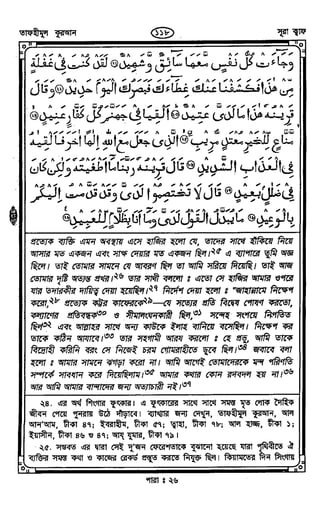 তাফহীমুল কুরআন ১১৮ সূরা ক্বাফ
وَجَآءَتْ كُلُّ نَفْسٍ مَّعَهَا سَآئِقٌ وَّشَهِيْدٌ ۞ لَقَدْ كُنْتَ فِيْ غَفْلَةٍ
مِّنْ هٰذَا فَكَشَفْنَا عَنْكَ غِطَآءَكَ فَبَصَرُكَ الْيَوْمَ حَدِيْدٌ ۞ وَقَالَ
قَرِيْنُهٗ هٰذَا مَا لَدَيَّ عَتِيْدٌ ۞ اَلْقِيَا فِيْ جَهَنَّمَ كُلَّ كَفَّارٍ عَنِيْدٍ ۞
مَّنَّاعٍ لِّلْخَيْرِ مُعْتَدٍ مُّرِيْبٍ ۞ الَّذِيْ جَعَلَ مَعَ اللهِ اِلٰهًا اٰخَرَ فَاَلْقِيٰهُ
فِي الْعَذَابِ الشَّدِيْدِ ۞ قَالَ قَرِيْنُهٗ رَبَّنَا مَآ اَطْغَيْتُهٗ وَلٰكِنْ كَانَ
فِيْ ضَلٰلٍۢ بَعِيْدٍ ۞ قَالَ لَا تَخْتَصِمُوْا لَدَيَّ وَقَدْ قَدَّمْتُ اِلَيْكُمْ
بِالْوَعِيْدِ ۞ مَا يُبَدَّلُ الْقَوْلُ لَدَيَّ وَمَآ اَنَا بِظَلَّامٍ لِّلْعَبِيْدِ ۞
প্রত্যেক ব্যক্তি এমন অবস্থায় এসে হাজির হলো যে, তাদের সাথে হাঁকিয়ে নিয়ে
আসার মত একজন এবং সাক্ষ্য দেয়ার মত একজন ছিল।২৫ এ ব্যাপারে তুমি অজ্ঞ
ছিলে। তাই তোমার সামনে যে আবরণ ছিল তা আমি সরিয়ে দিয়েছি। তাই আজ
তোমার দৃষ্টি অত্যন্ত প্রখর।২৬ তার সাথী বললো : এতো সে হাজির আমার ওপরে
যার তদারকীর দায়িত্ব দেয়া হয়েছিল।২৭ নির্দেশ দেয়া হলো : "জাহান্নামে নিক্ষেপ
করো,২৮ প্রত্যেক কট্টর কাফেরকে২৯—যে সত্যের প্রতি বিদ্বেষ পোষণ করতো,
কল্যাণের প্রতিবন্ধক৩০ ও সীমালংঘনকারী ছিল,৩১ সন্দেহ সংশয়ে নিপতিত
ছিল৩২ এবং আল্লাহর সাথে অন্য কাউকে ইলাহ বানিয়ে বসেছিল। নিক্ষেপ কর
তাকে কঠিন আযাবে।৩৩ তার সহগামী আরয করলো : হে প্রভু, আমি তাকে
বিদ্রোহী করিনি বরং সে নিজেই চরম গোমরাহীতে ডুবে ছিল।৩৪ জবাবে বলা
হলো : আমার সামনে ঝগড়া করো না। আমি আগেই তোমাদেরকে মন্দ পরিণতি
সম্পর্কে সাবধান করে দিয়েছিলাম।৩৫ আমার কথার কোন রদবদল হয় না।৩৬
আর আমি আমার বান্দাদের জন্য অত্যাচারী নই।৩৭
২৪. এর অর্থ শিংগার ফুৎকার। এ ফুৎকারের সাথে সাথে সমস্ত মৃত লোক দৈহিক
জীবন পেয়ে পুনরায় উঠে দাঁড়াবে। ব্যাখ্যার জন্য দেখুন, তাফহীমুল কুরআন, আল
আন'আম, টীকা ৪৭; ইবরাহীম, টীকা ৫৭; ত্বাহা, টীকা ৭৮; আল হাজ্জ, টীকা ১;
ইয়াসীন, টীকা ৪৬ ও ৪৭; আয্ যুমার, টীকা ৭৯।
২৫. সম্ভবত এর দ্বারা সেই দু'জন ফেরেশতাকে বুঝানো হয়েছে যারা পৃথিবীতে ঐ
ব্যক্তির সমস্ত কথা ও কাজের রেকর্ড প্রস্তুত করতে নিযুক্ত ছিল। কিয়ামতের দিন সিংগায়
পারা : ২৬